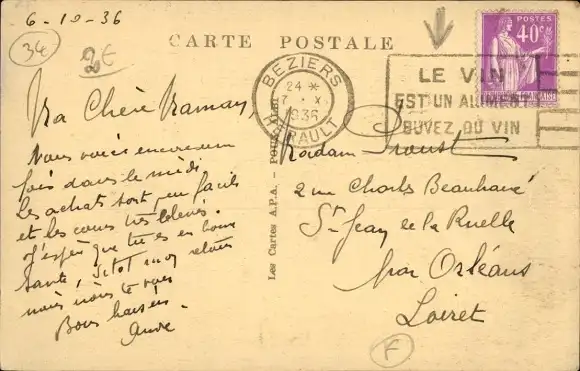 6-10-36
34
2€
CARTE POSTALE
POSTES
40c
BEZIERS
24 *
7 - X
1936
HERAULT
LE VIN
EST UN ALIMENT
BUVEZ DU VIN
Ma Chère Maman,
Nous voici encore une
fois dans le midi
Les achats sont peu facils
et les cours très élevés.
J'espère que tu es en bonne
santé, sitôt mon retour
nous irons te voir
Bons baisers
André
Les Cartes A.P.A. - POUX, ALBI
Madame Proust
2 rue Charles Beauharné
St Jean de la Ruelle
par Orléans
Loiret
F